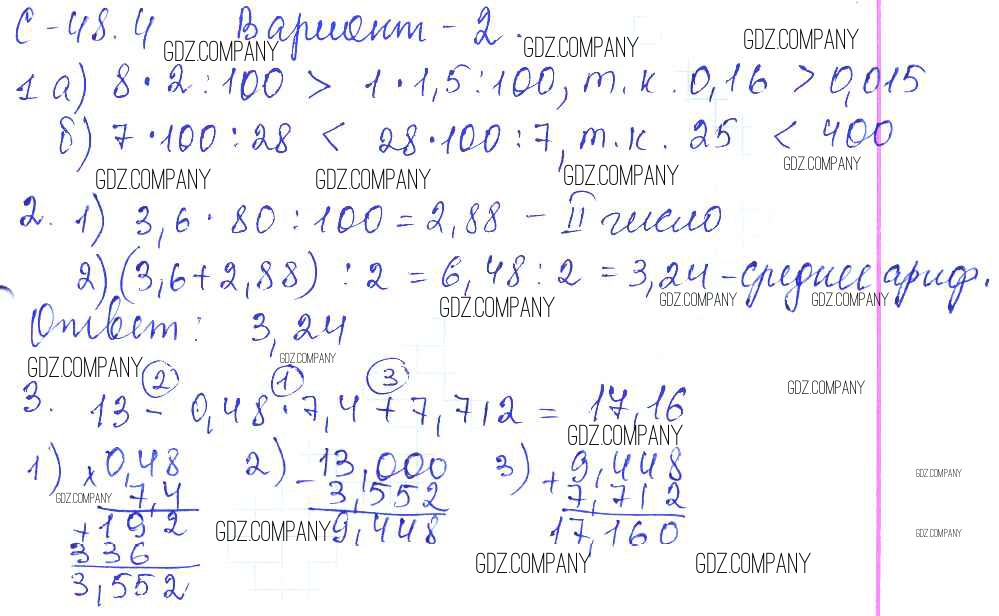 С-48.4 Вариант - 2.
GDZ.COMPANY GDZ.COMPANY GDZ.COMPANY
1 а) 8 · 2 : 100 > 1 · 1,5 : 100, т.к. 0,16 > 0,015
б) 7 · 100 : 28 < 28 · 100 : 7, т.к. 25 < 400
GDZ.COMPANY GDZ.COMPANY GDZ.COMPANY GDZ.COMPANY
2. 1) 3,6 · 80 : 100 = 2,88 - II число
2) (3,6 + 2,88) : 2 = 6,48 : 2 = 3,24 - среднее ариф.
GDZ.COMPANY GDZ.COMPANY GDZ.COMPANY
Ответ: 3,24
GDZ.COMPANY GDZ.COMPANY
2 1 3
3. 13 - 0,48 · 7,4 + 7,712 = 17,16
GDZ.COMPANY
GDZ.COMPANY
1) × 0,48 2) - 13,000 3) + 9,448
GDZ.COMPANY
GDZ.COMPANY
7,4 3,552 7,712
+ 192 9,448 17,160
GDZ.COMPANY GDZ.COMPANY
336
3,552
GDZ.COMPANY GDZ.COMPANY